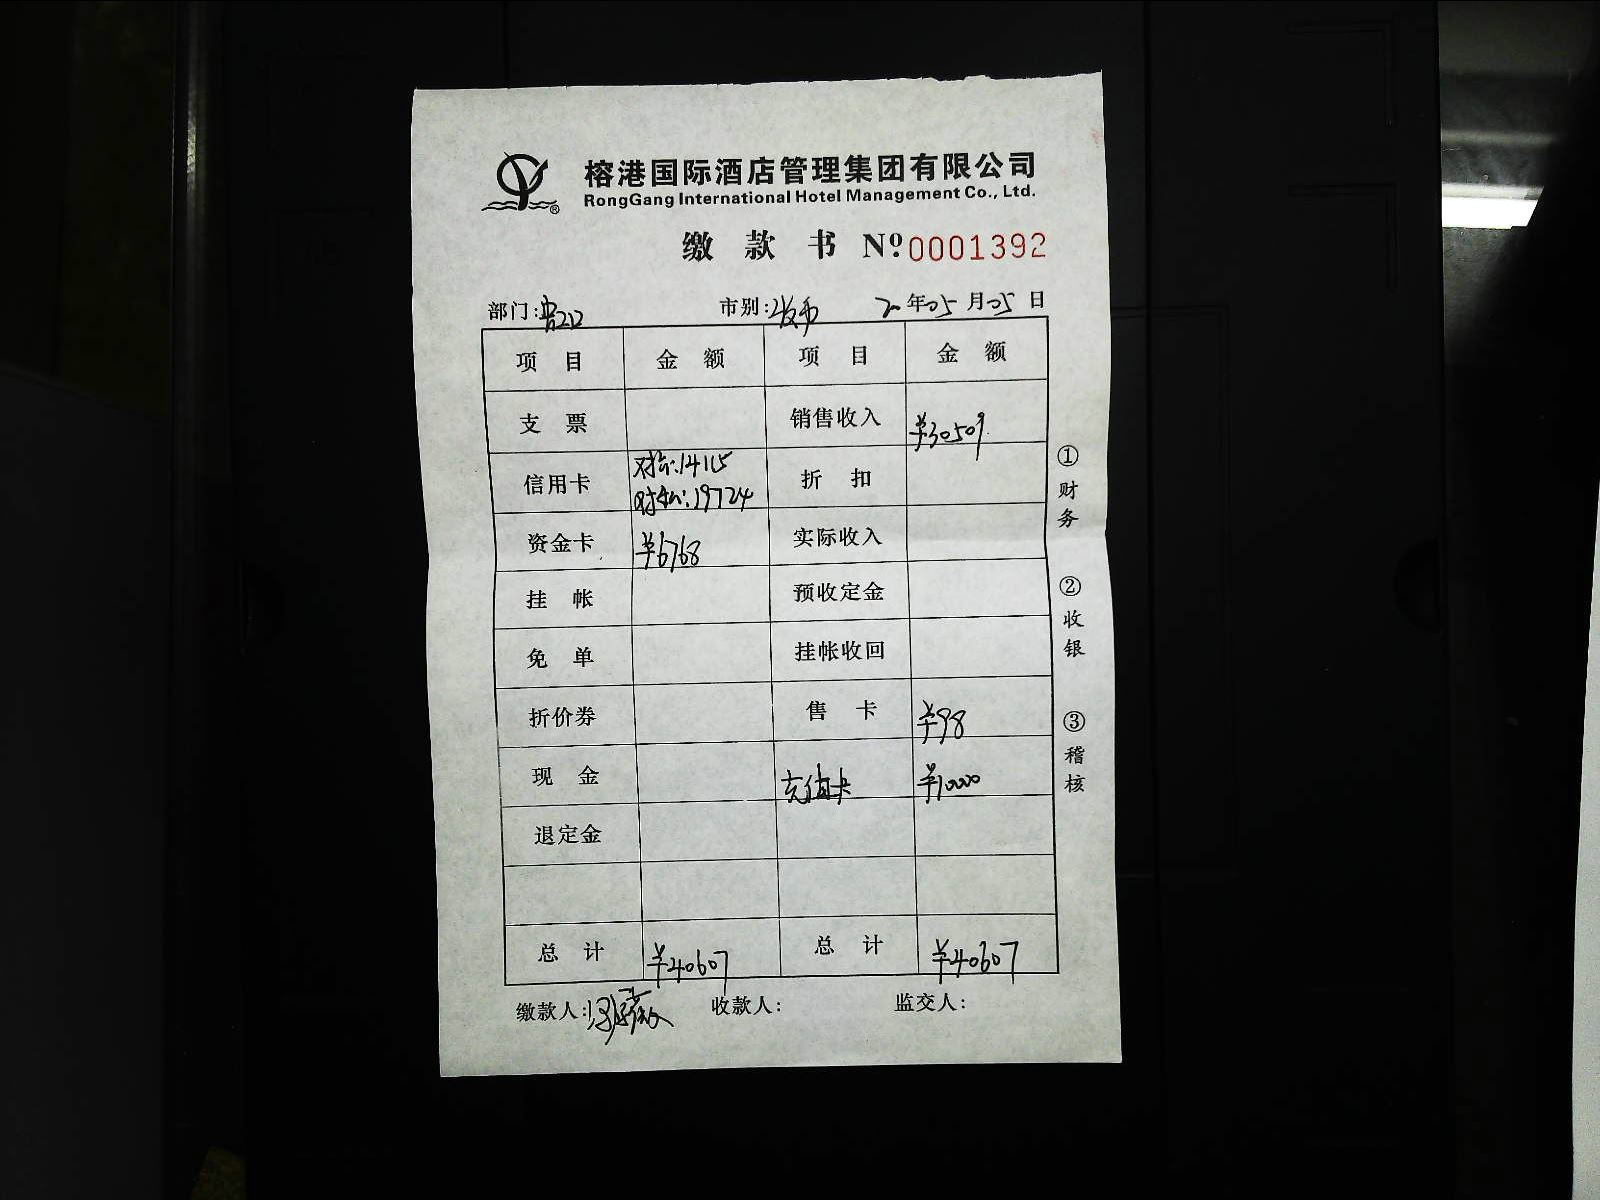 榕港国际酒店管理集团有限公司
RongGang International Hotel Management Co., Ltd.
缴 款 书 Nº:0001392
部门: 市别:夜市 20年05月05日
项 目 金 额 项 目 金 额
支 票 销售收入 ¥30509
信用卡 对公:14115 19724 折 扣
资金卡 ¥6768 实际收入
挂 帐 预收定金
免 单 挂帐收回
折价券 售 卡 ¥98
现 金 充值卡 ¥10000
退定金
总 计 ¥40607 总 计 ¥40607
缴款人: 收款人: 监交人:
①财务
②收银
③稽核